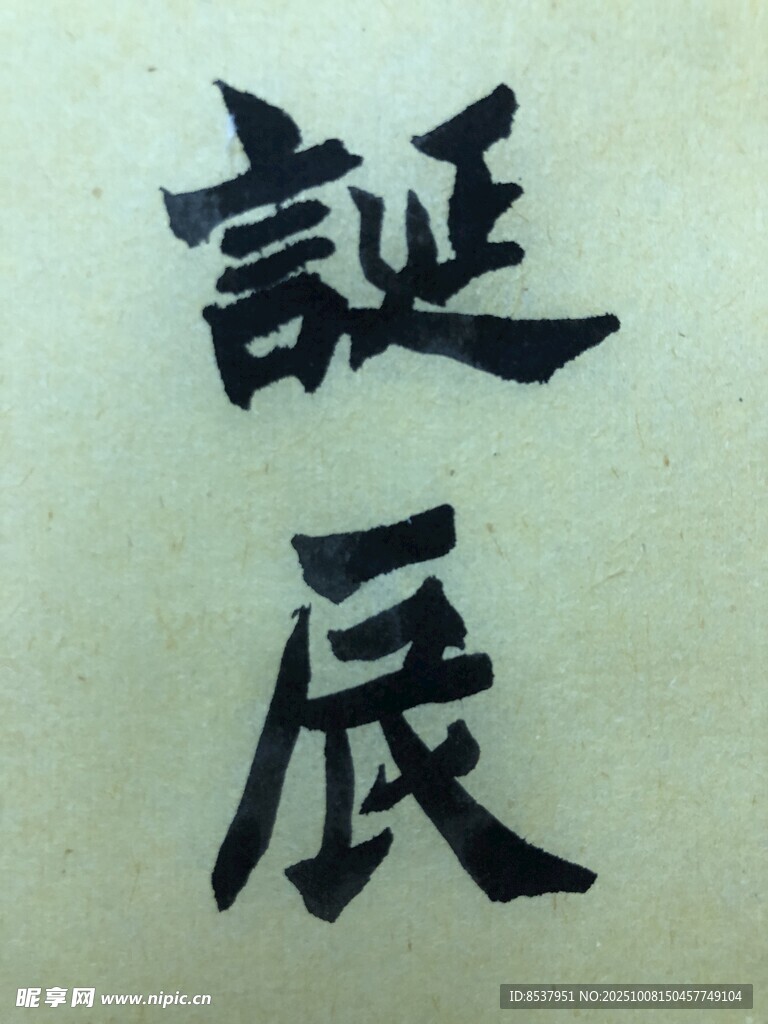 誕
辰
昵享网 www.nipic.cn
ID:8537951 NO:20251008150457749104